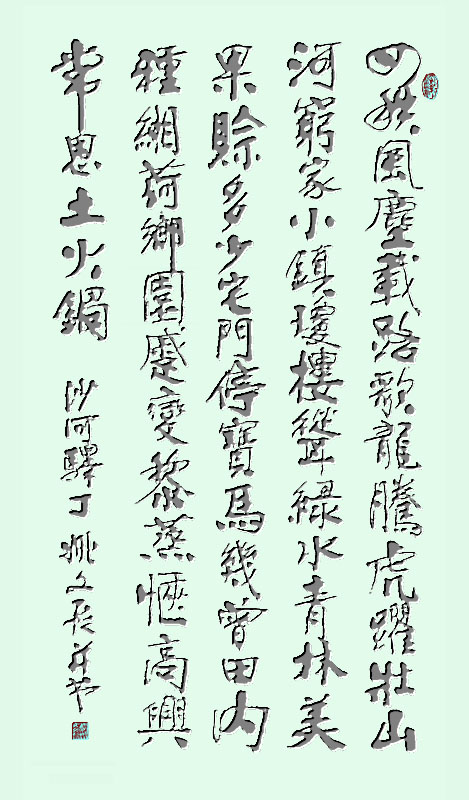 四秩風塵載路歌龍騰虎躍壯山
河窮家小鎮瓊樓聳綠水青林美
果賒多少宅門停寶馬幾曾田內
種緗荷鄉園蹙變黎蒸愜高興
常思土火鍋
沙河驛丁姚文長並書